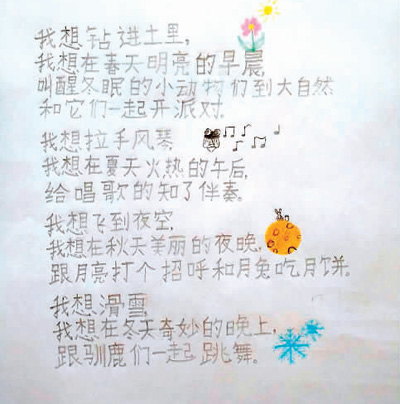 我想钻进土里,
我想在春天明亮的早晨,
叫醒冬眠的小动物们到大自然
和它们一起开派对.
我想拉手风琴
我想在夏天火热的午后,
给唱歌的知了伴奏。
我想飞到夜空,
我想在秋天美丽的夜晚,
跟月亮打个招呼和月兔吃月饼.
我想滑雪
我想在冬天奇妙的晚上,
跟驯鹿们一起跳舞。